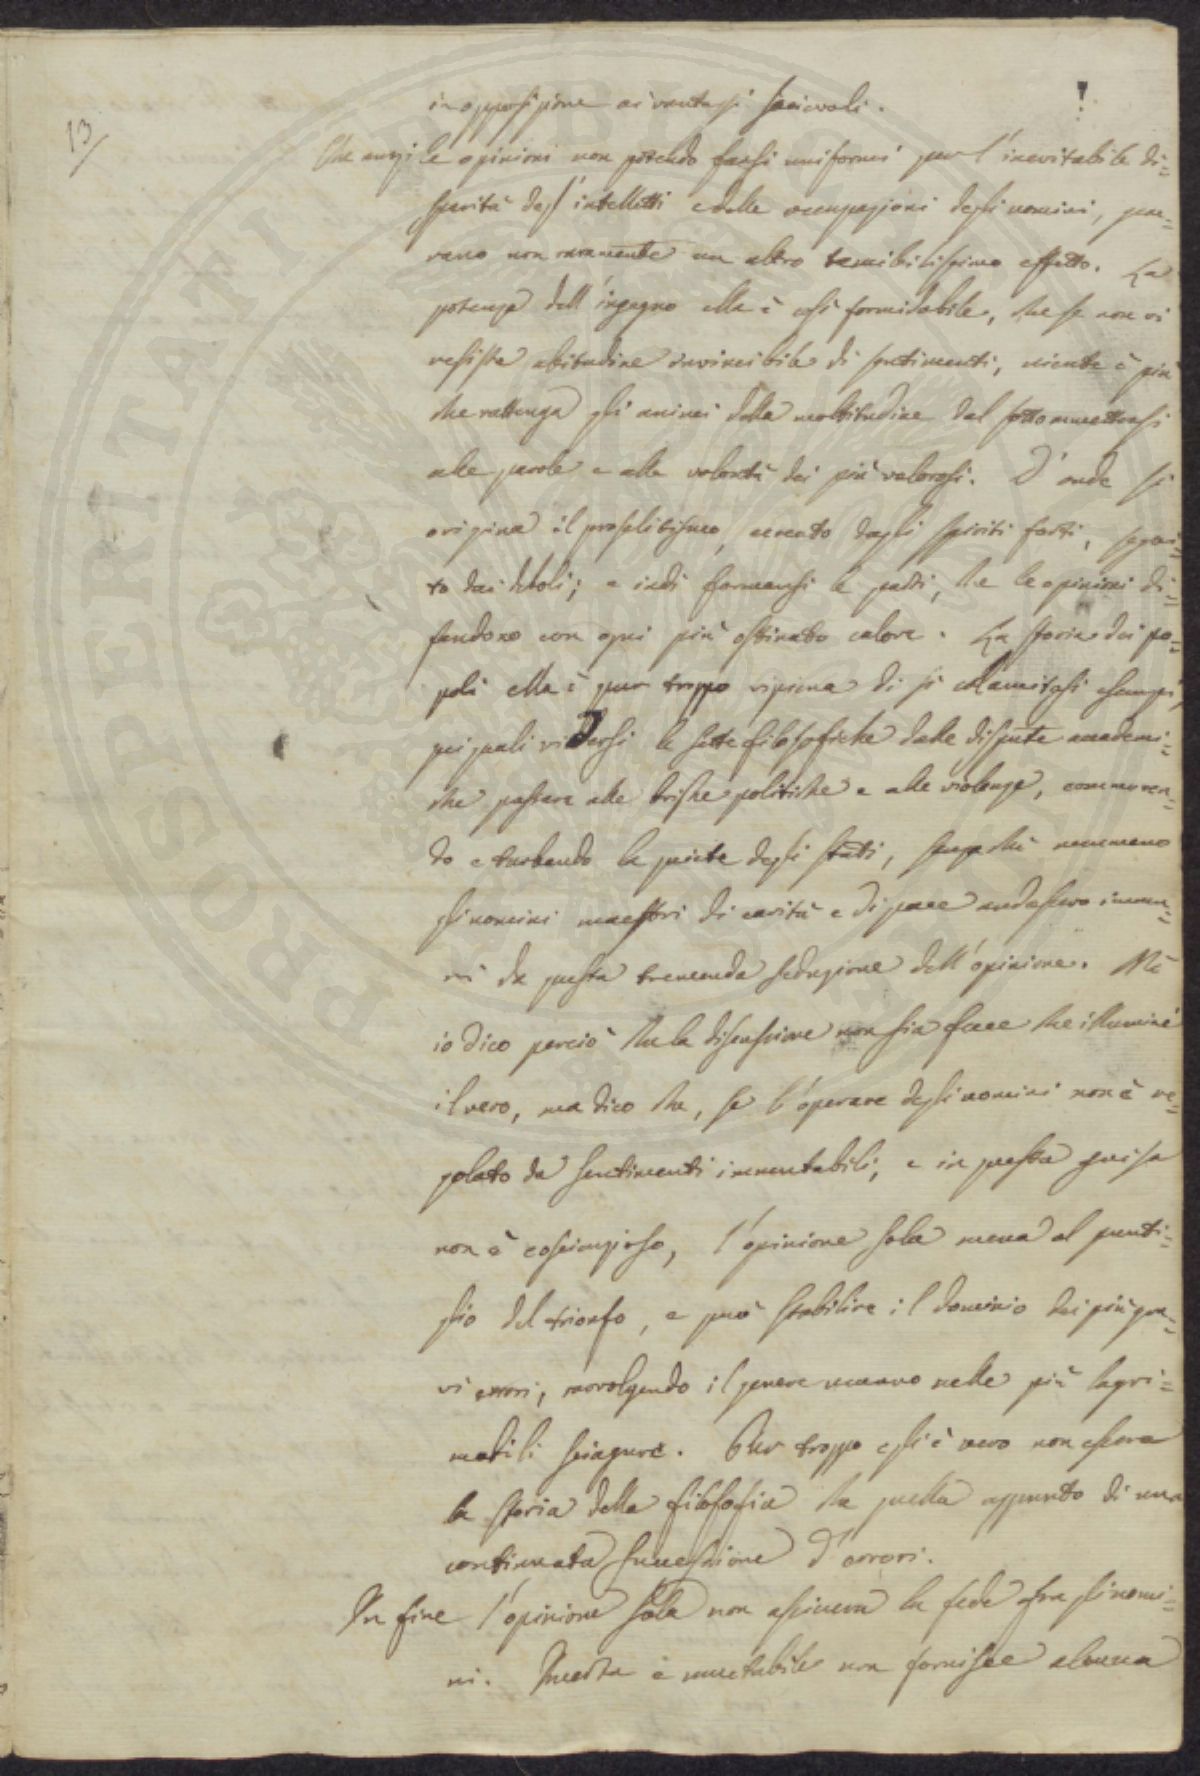 13/
in opposizione ai vantaggi socievoli.
Che anzi le opinioni non potendo farsi uniformi per l'inevitabile di=
sparità degl'intelletti e delle occupazioni degli uomini, ge=
rano non raramente un altro temibilissimo effetto. La
potenza dell'ingegno ella è così formidabile, che se non vi
resiste abitudine invincibile di sentimenti, niente è più
che rattenga gli animi della moltitudine dal sottomettersi
alle parole e alle volontà dei più valorosi. D'onde si
origina il proselitismo, cercato dagli spiriti forti, segui=
to dai deboli; e indi formansi le parti, che le opinioni di=
fendono con ogni più ostinato calore. La storia dei po=
poli ella è pur troppo ripiena di sì calamitosi esempi,
pei quali vidersi le sette filosofiche dalle dispute accademi=
che passare alle brighe politiche e alle violenze, commoven=
do e turbando la quiete degli stati, senza che nemmeno
gli uomini maestri di carità e di pace andassero immu=
ni da questa tremenda seduzione dell'opinione. Nè
io dico perciò che la discussione non sia face che illumini
il vero, ma dico che, se l'operare degli uomini non è re=
golato da sentimenti immutabili, e in questa guisa
non è coscienzioso, l'opinione sola mena al punti=
glio del trionfo, e può stabilire il dominio dei più gra=
vi errori, ravvolgendo il genere umano nelle più lagri=
mabili sciagure. Pur troppo egli è vero non essere
la storia della filosofia che quella appunto di una
continuata successione d'errori.
In fine l'opinione sola non assicura la fede fra gli uomi=
ni. Questa è mutabile non fornisce alcuna
PROSPERITATI PUBLICAE